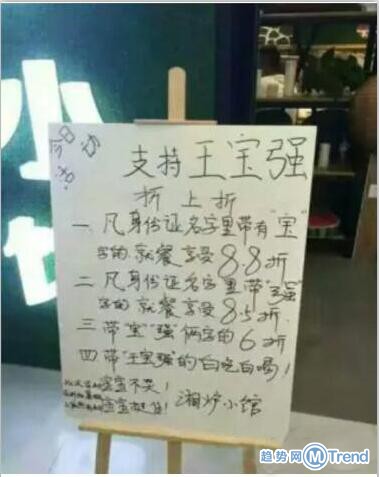 今日活动
支持王宝强
折上折
一、凡身份证名字里带有"宝"
字的就餐享受8.8折
二、凡身份证名字里带"强"
字的就餐享受8.5折
三、带"宝""强"俩字的6折
四、带"王宝强"的白吃白喝!
宝宝不哭!
宝宝挺住!
湘炉小馆
趋势网 MTrend